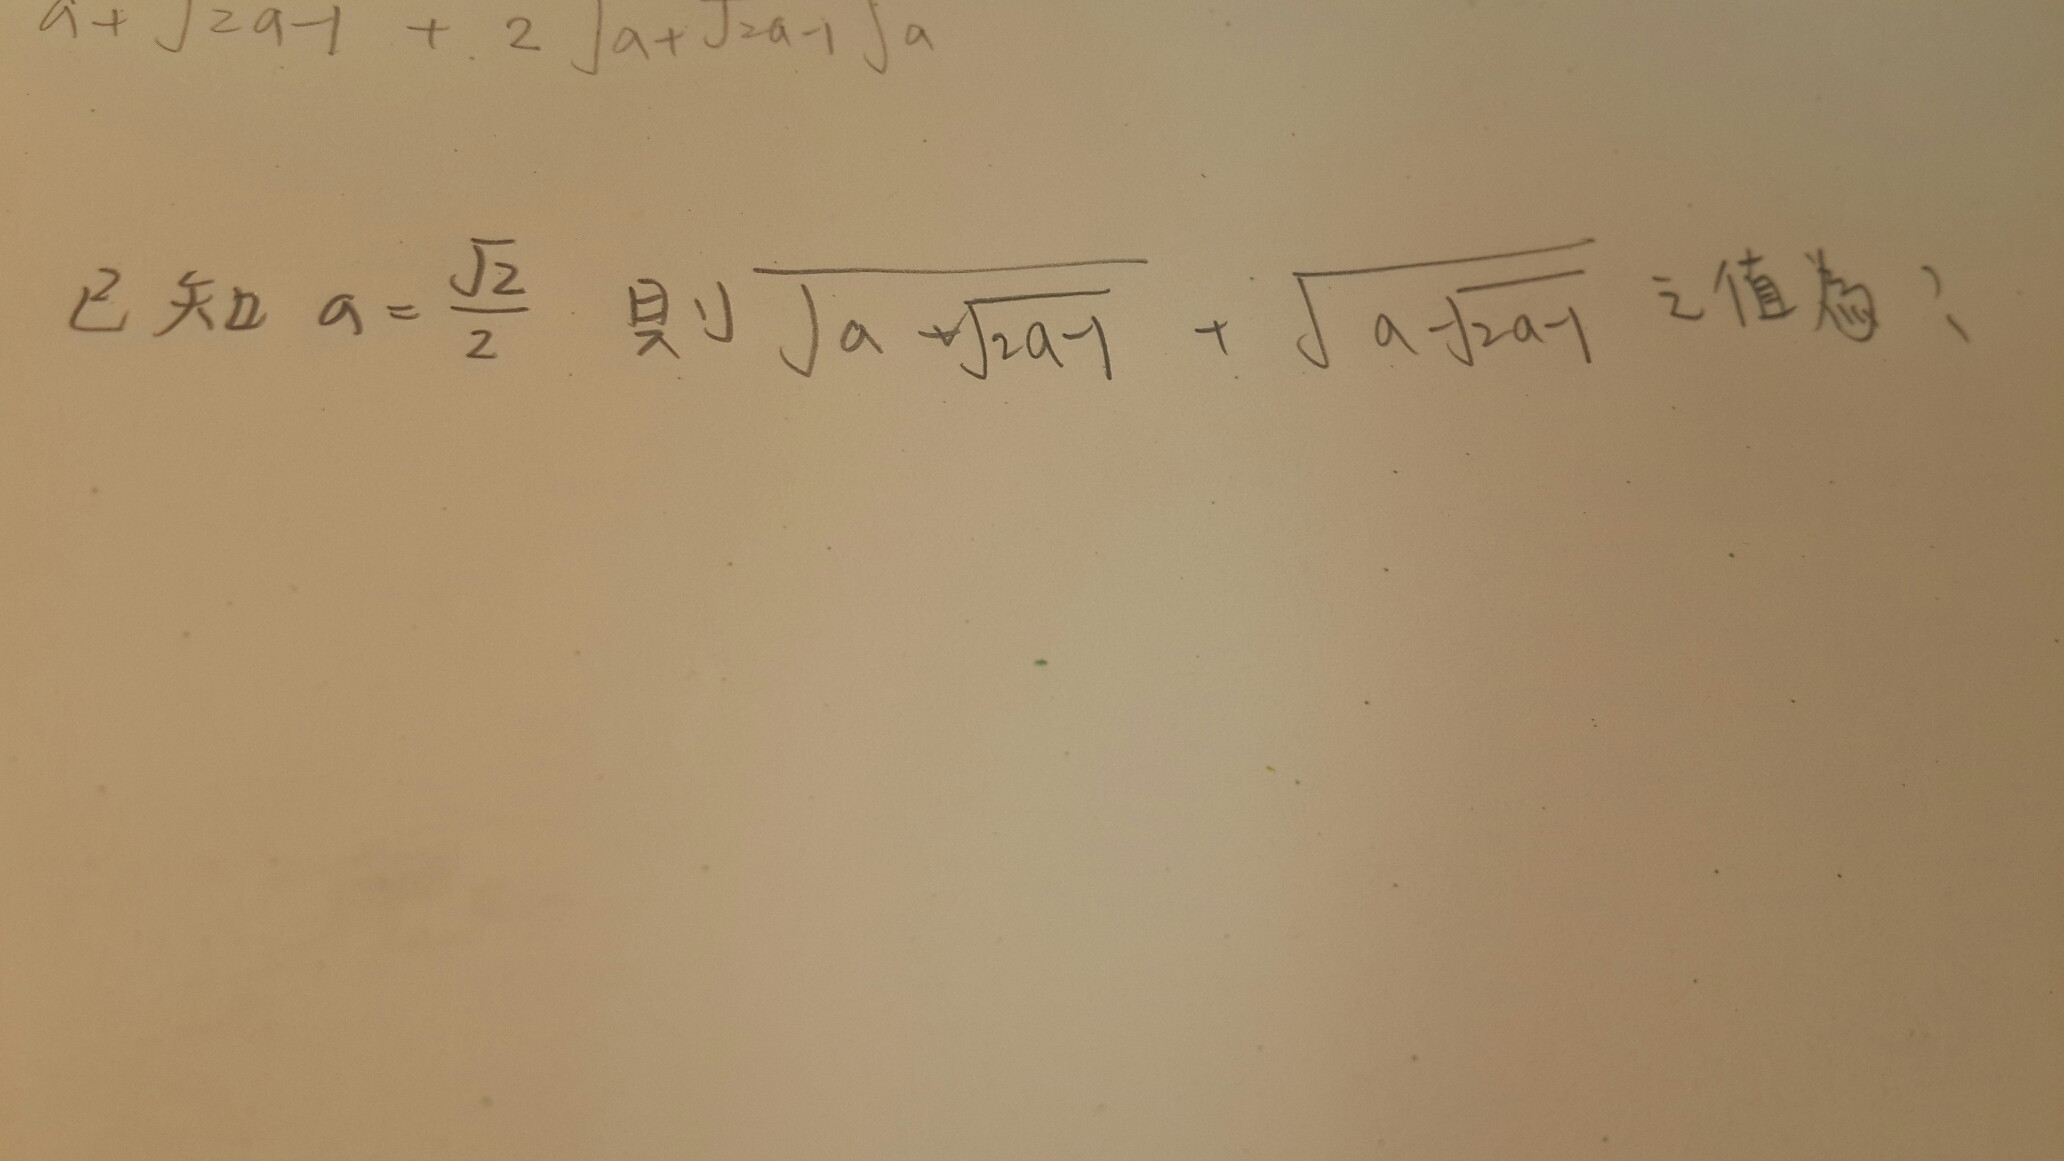 a+√2a-1 + 2√a+√2a-1√a
已知 a=√2/2 则√(a+√(2a-1)) + √(a-√(2a-1)) 之值为?